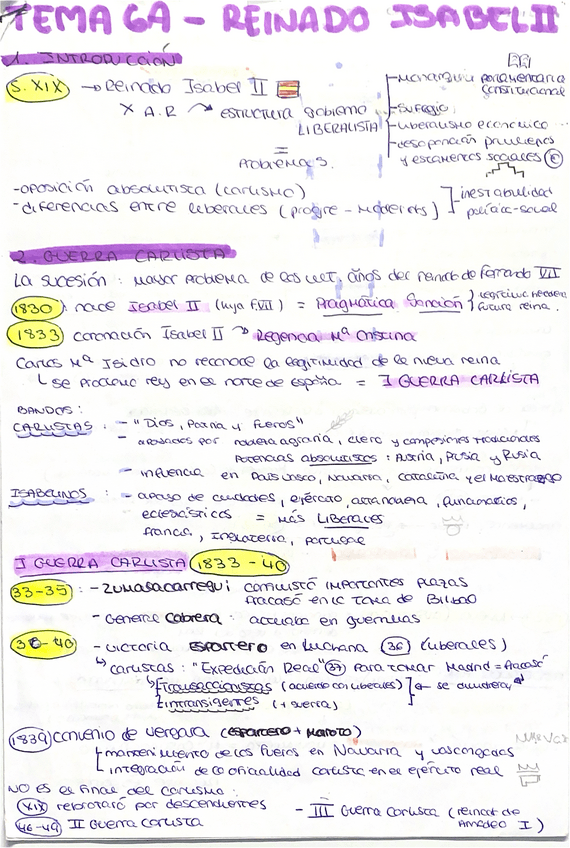 TEMA 6A - REINADO ISABEL II
1. INTRODUCCIÓN
S. XIX → Reinado Isabel II
X A.R → ESTRUCTURA gobierno LIBERALISTA
- Monarquía parlamentaria constitucional
- Sufragio
- Liberalismo económico
- desaparición privilegios y estamentos sociales
=
PROBLEMAS.
- oposición absolutista (carlismo)
- diferencias entre liberales (progre - Moderats)
inestabilidad política-social
2. GUERRA CARLISTA
La sucesión: mayor problema de los últ. años del reinado de Fernando VII
1830: nace Isabel II (hija FVII) = Pragmática Sanción } legítima heredera futura reina.
1833 coronación Isabel II → Regencia Mª Cristina
Carlos Mª Isidro no reconoce la legitimidad de la nueva reina
↳ se proclamó rey en el norte de españa = I GUERRA CARLISTA
BANDOS:
CARLISTAS: - "Dios, Patria y Fueros"
- apoyados por nobleza agraria, clero y campesinos tradicionales
Potencias absolutistas: Austria, Prusia y Rusia
- influencia en País Vasco, Navarra, Cataluña y el Maestrazgo
ISABELINOS: - apoyo de ciudades, ejército, alta nobleza, funcionarios,
eclesiásticos = más LIBERALES
Francia, Inglaterra, Portugal
I GUERRA CARLISTA 1833 - 40
33-35: - ZUMALACARREGUI conquistó importantes plazas
fracasó en la toma de Bilbao
- General Cabrera: actuaba en guerrillas
36-40 - victoria ESPARTERO en Luchana (36) (Liberales)
↳ carlistas: "Expedición Real" (37) para tomar Madrid = fracasó
↳ Transaccionistas (acuerdo con liberales)
intransigentes (+ guerra)
← se dividieron
1839 convenio de vergara (ESPARTERO + MAROTO)
mantenimiento de los fueros en Navarra y vascongadas
integración de la oficialidad carlista en el ejército real
NO ES el final del carlismo:
XIX rebrotará por descendientes
46-49 II Guerra carlista
- III Guerra carlista (reinat de Amadeo I)